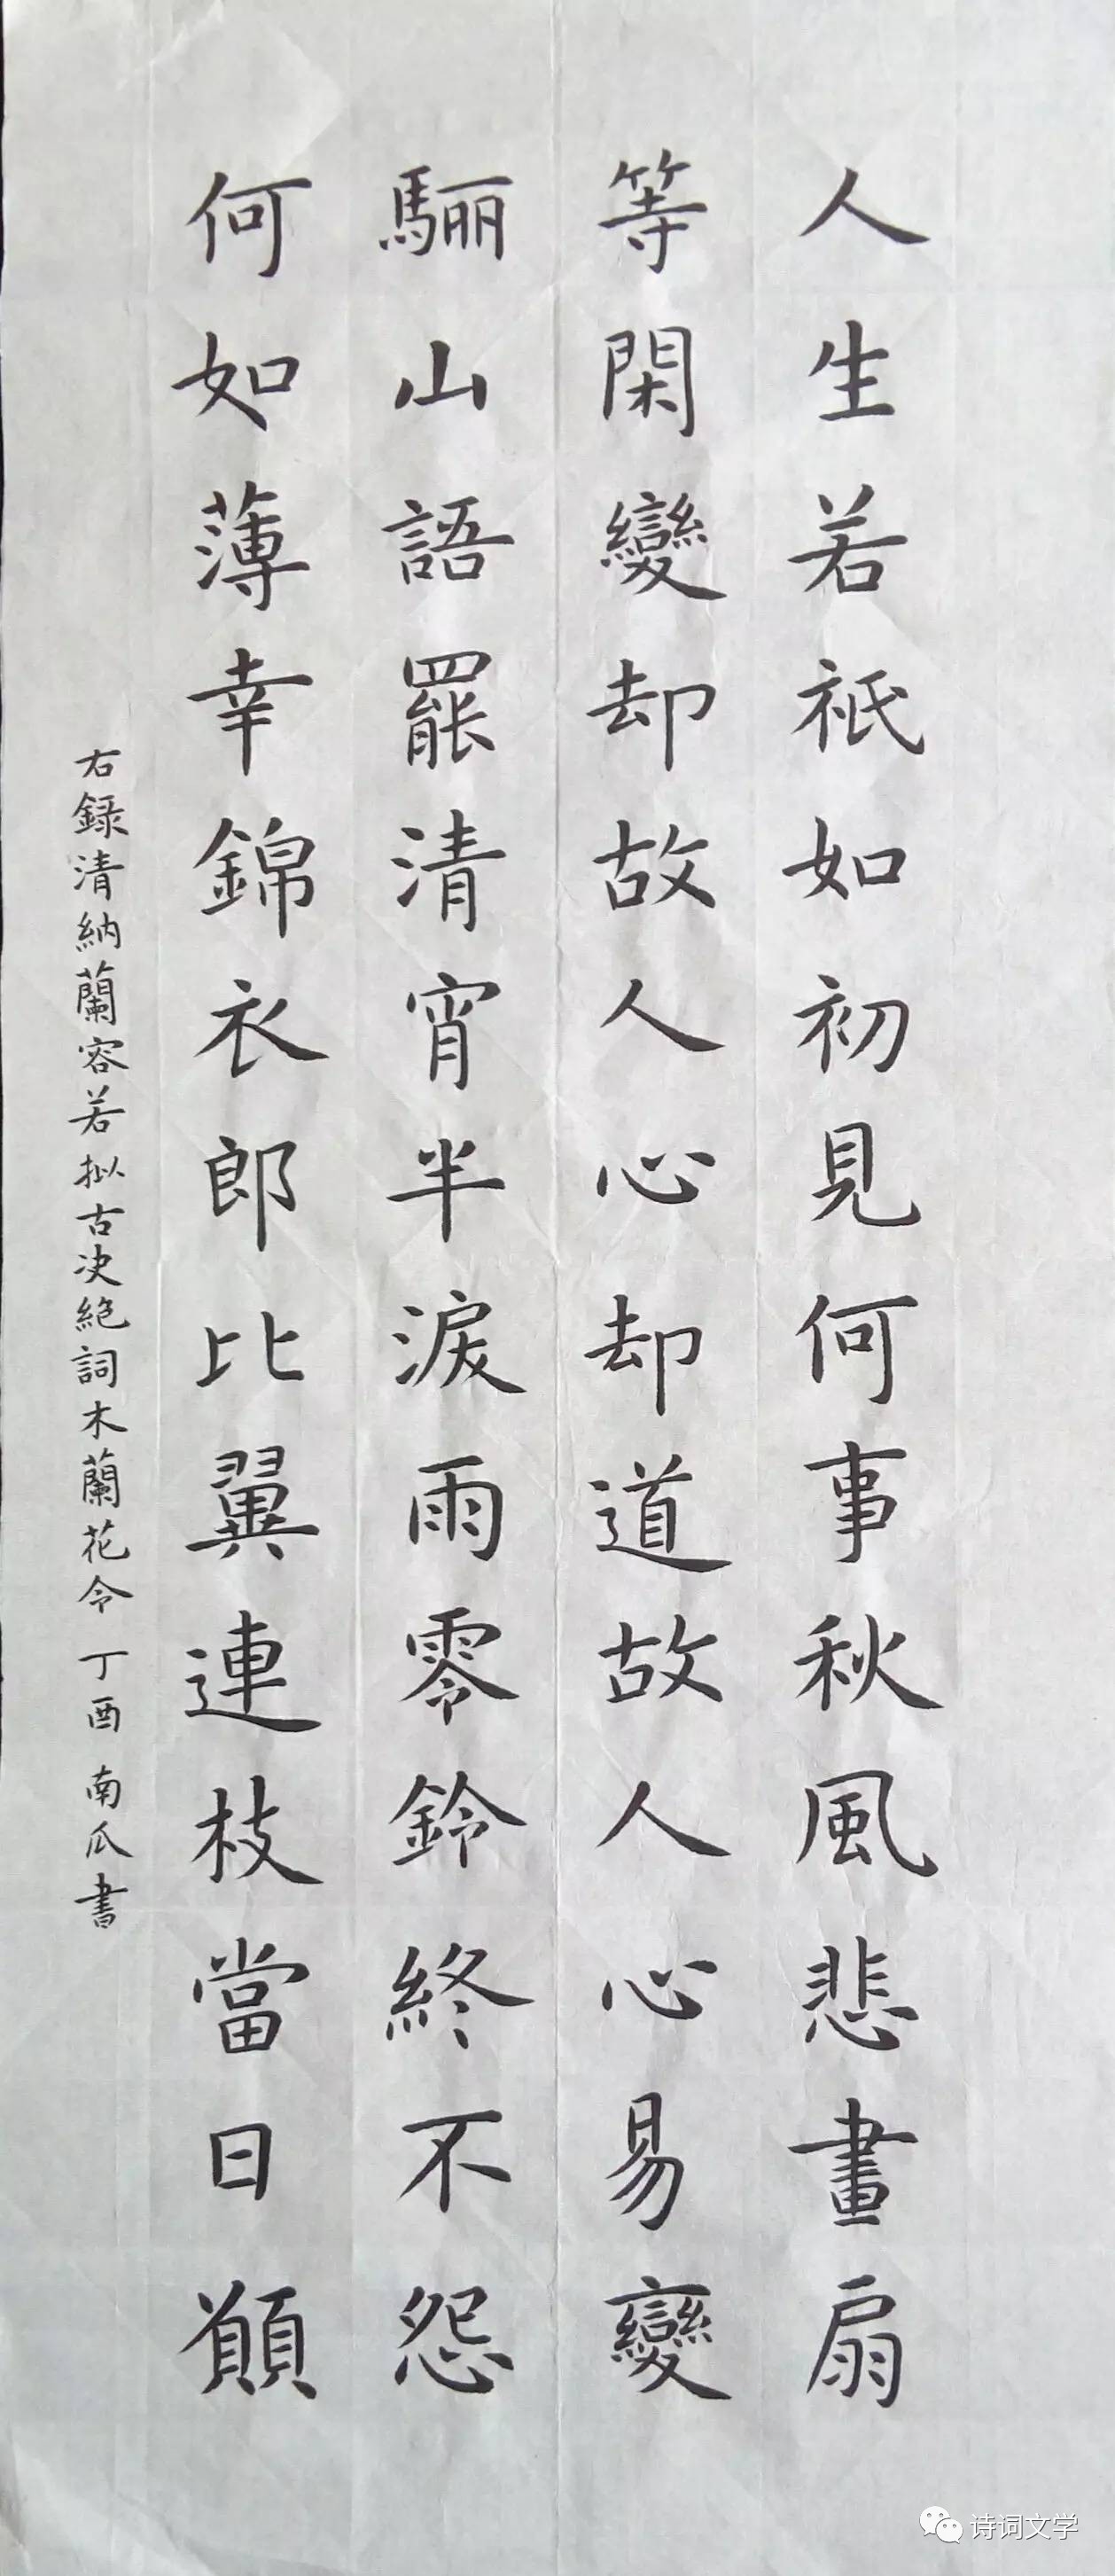 人生若祇如初見何事秋風悲畫扇
等閑變却故人心却道故人心易變
驪山語罷清宵半淚雨零鈴終不怨
何如薄幸錦衣郎比翼連枝當日願
右録清納蘭容若拟古决絶詞木蘭花令丁酉南瓜書
诗词文学